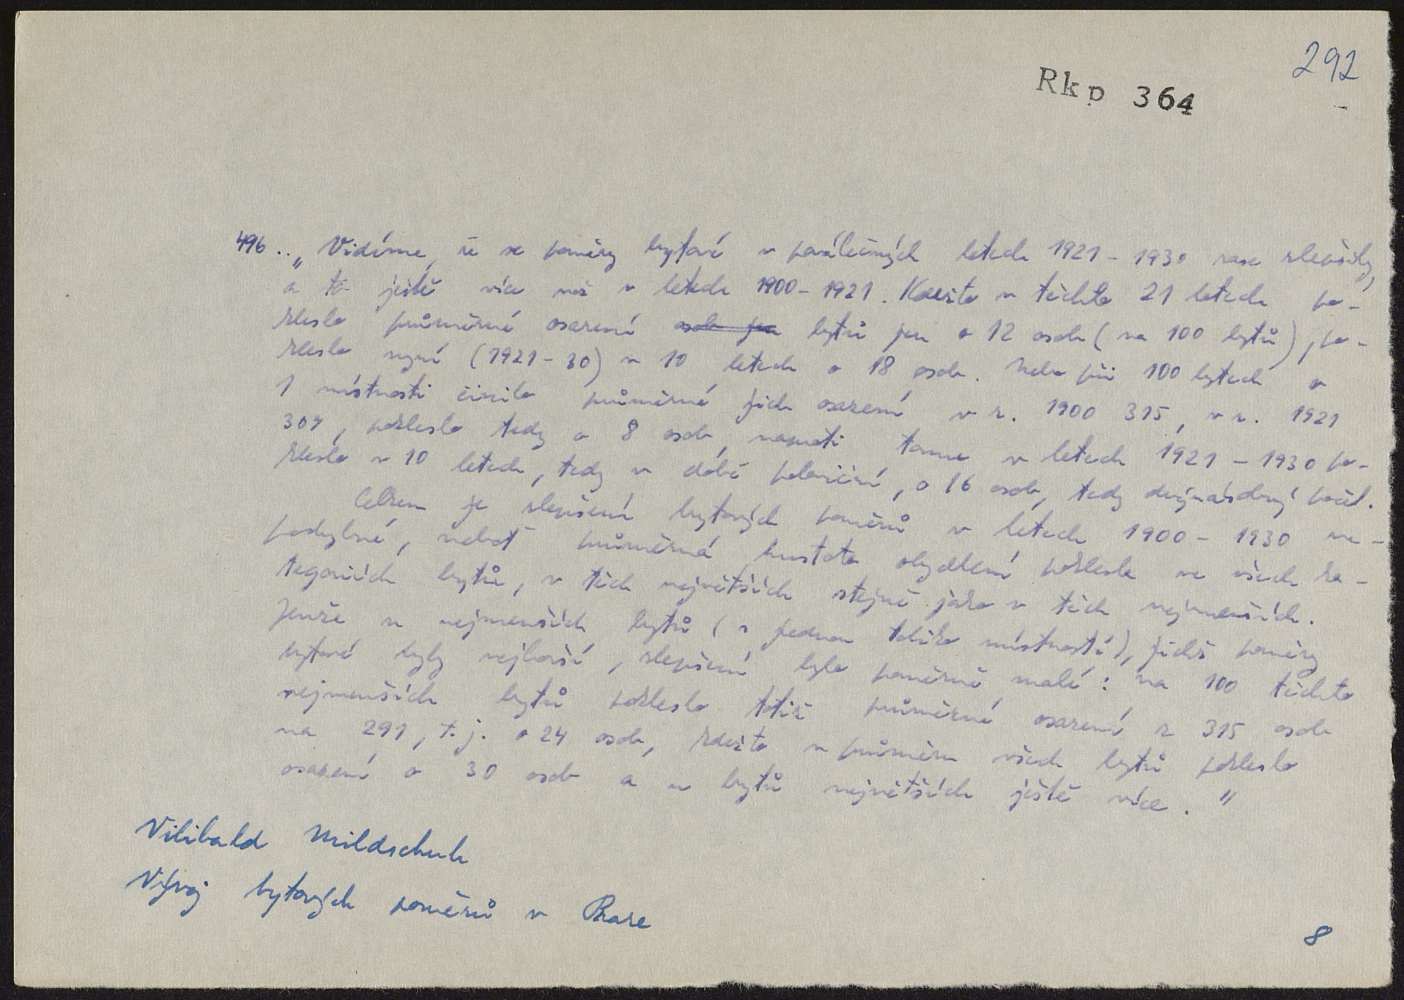 292
Rkp 364
496.. „Vidíme, že se poměry bytové v poválečných letech 1921 – 1930 zase zlepšily,
a to ještě více než v letech 1900 – 1921. Kdežto v těchto 21 letech po-
kleslo průměrné osazení osob jen bytů jen o 12 osob (na 100 bytů), po-
kleslo nyní (1921 – 30) v 10 letech o 18 osob. Nebo při 100 bytech o
1 místnosti činilo průměrné jich osazení v r. 1900 315, v r. 1921
307, pokleslo tedy o 8 osob, naproti tomu v letech 1921 – 1930 po-
kleslo v 10 letech, tedy v době poloviční, o 16 osob, tedy dvojnásobný počet.
Celkem je zlepšení bytových poměrů v letech 1900 – 1930 ne-
pochybné, neboť průměrná hustota obydlení poklesla ve všech ka-
tegoriích bytů, v těch největších stejně jako v těch nejmenších.
Jenže u nejmenších bytů (s jednou toliko místností), jichž poměry
bytové byly nejhorší, zlepšení bylo poměrně malé: na 100 těchto
nejmenších bytů pokleslo totiž průměrné osazení z 315 osob
na 291, t. j. o 24 osob, kdežto v průměru všech bytů pokleslo
osazení o 30 osob a u bytů největších ještě více."
Vilibald Mildschuh
Vývoj bytových poměrů v Praze
8